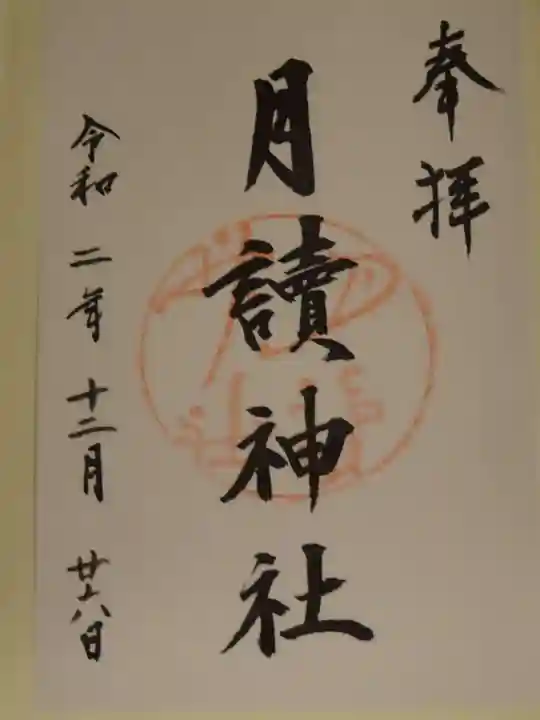 奉拝
月讀神社
令和二年十二月廿六日